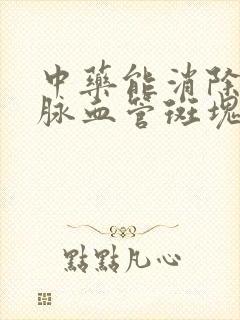 中藥能消除
脈血管斑塊
點點凡心